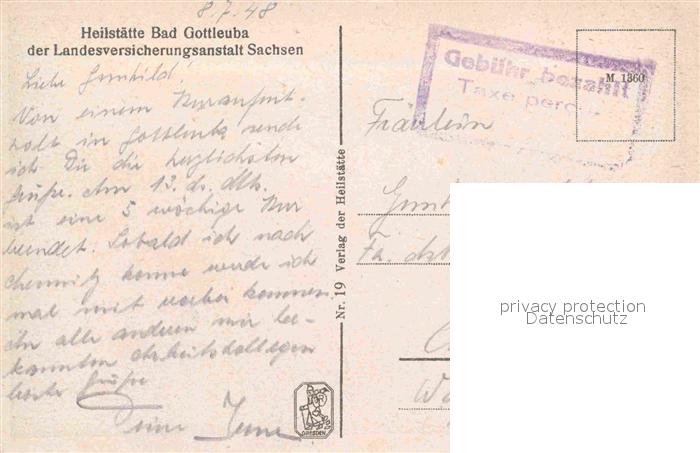 8.7.48
Heilstätte Bad Gottleuba
der Landesversicherungsanstalt Sachsen
Liebe Gunhild!
Von einem Kuraufent-
halt in Gottleuba sende
ich Dir die herzlichsten
Grüße. Am 13. ds. Mts.
ist eine 5 wöchige Kur
beendet. Sobald ich nach
Chemnitz komme werde ich
mal mit vorbei kommen.
An alle anderen mir be-
kannten Arbeitskollegen
beste Grüße
Nr. 19 Verlag der Heilstätte
DRESDEN
Gebühr bezahlt
Taxe perçue
M. 1360
Fräulein
Fa.
privacy protection
Datenschutz